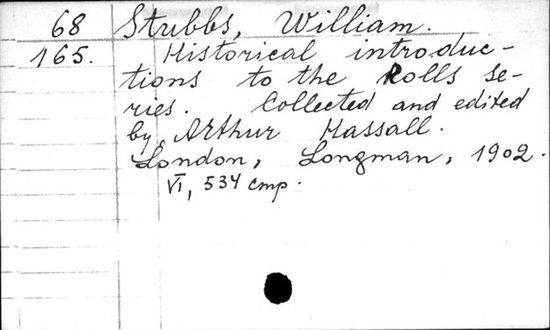 68 Stubbs, William.
165. Historical introduc-
tions to the Rolls se-
ries. Collected and edited
by Arthur Hassall.
London, Longman, 1902.
VI, 534 стр.